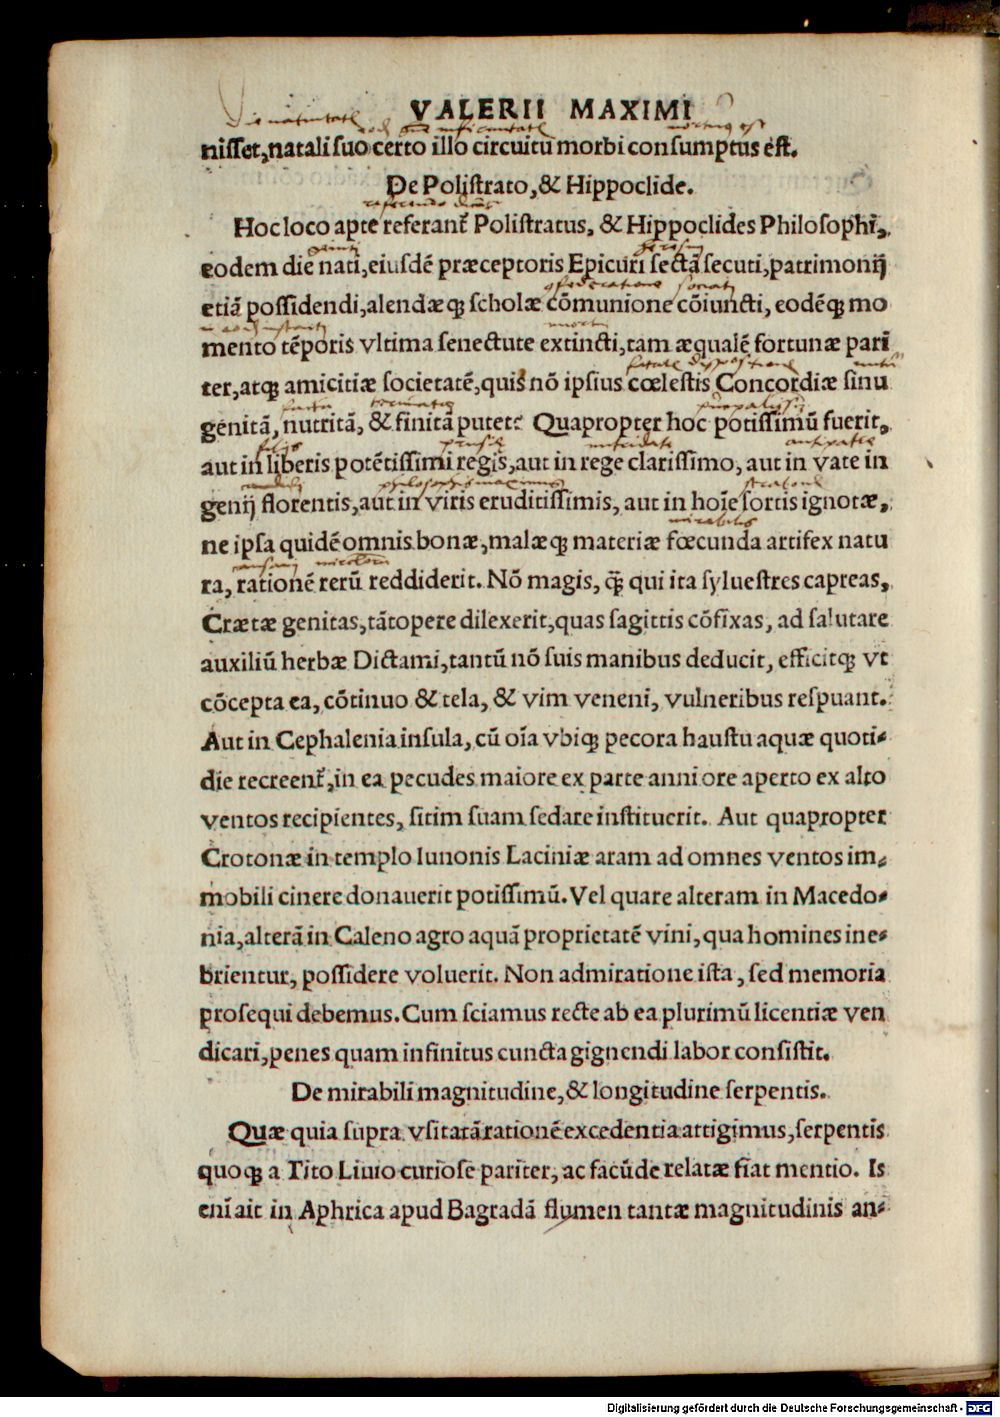 VALERII MAXIMI
nisset, natali suo certo illo circuitu morbi consumptus est.
De Polistrato, & Hippoclide.
Hoc loco apte referant̃ Polistratus, & Hippoclides Philosophi,
eodem die nati, eiusdẽ præceptoris Epicuri sectã secuti, patrimonij
etiã possidendi, alendæq; scholæ cõmunione cõiuncti, eodẽq; mo
mento tẽporis vltima senectute extincti, tam æqualẽ fortunæ pari
ter, atq; amicitiæ societatẽ, quis nõ ipsius cœlestis Concordiæ sinu
genitã, nutritã, & finitã putet? Quapropter hoc potissimũ fuerit,
aut in liberis potẽtissimi regis, aut in rege clarissimo, aut in vate in
genij florentis, aut in viris eruditissimis, aut in hoĩe sortis ignotæ,
ne ipsa quidẽ omnis bonæ, malæq; materiæ fœcunda artifex natu
ra, rationẽ rerũ reddiderit. Nõ magis, q̃ qui ita syluestres capreas,
Crætæ genitas, tãtopere dilexerit, quas sagittis cõfixas, ad salutare
auxiliũ herbæ Dictami, tantũ nõ suis manibus deducit, efficitq; vt
cõcepta ea, cõtinuo & tela, & vim veneni, vulneribus respuant.
Aut in Cephalenia insula, cũ oĩa vbiq; pecora haustu aquæ quoti-
die recreent̃, in ea pecudes maiore ex parte anni ore aperto ex alto
ventos recipientes, sitim suam sedare instituerit. Aut quapropter
Crotonæ in templo Iunonis Laciniæ aram ad omnes ventos im-
mobili cinere donauerit potissimũ. Vel quare alteram in Macedo-
nia, alterã in Caleno agro aquã proprietatẽ vini, qua homines ine-
brientur, possidere voluerit. Non admiratione ista, sed memoria
prosequi debemus. Cum sciamus recte ab ea plurimũ licentiæ ven
dicari, penes quam infinitus cuncta gignendi labor consistit.
De mirabili magnitudine, & longitudine serpentis.
Quæ quia supra vsitatã rationẽ excedentia attigimus, serpentis
quoq; a Tito Liuio curiose pariter, ac facũde relatæ fiat mentio. Is
enĩ ait in Aphrica apud Bagradã flumen tantæ magnitudinis an-
Digitalisierung gefördert durch die Deutsche Forschungsgemeinschaft - DFG